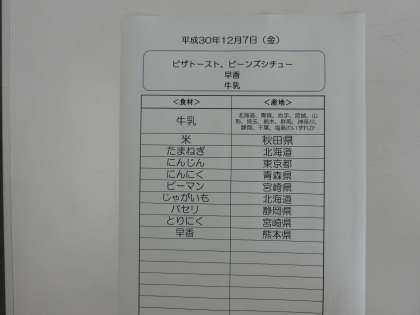 平成30年12月7日（金）
ピザトースト、ビーンズシチュー
早香
牛乳
＜食材＞ ＜産地＞
牛乳 北海道、青森、岩手、宮城、山
形、埼玉、栃木、群馬、神奈川、
静岡、千葉、福島のいずれか
米 秋田県
たまねぎ 北海道
にんじん 東京都
にんにく 青森県
ピーマン 宮崎県
じゃがいも 北海道
パセリ 静岡県
とりにく 宮崎県
早香 熊本県